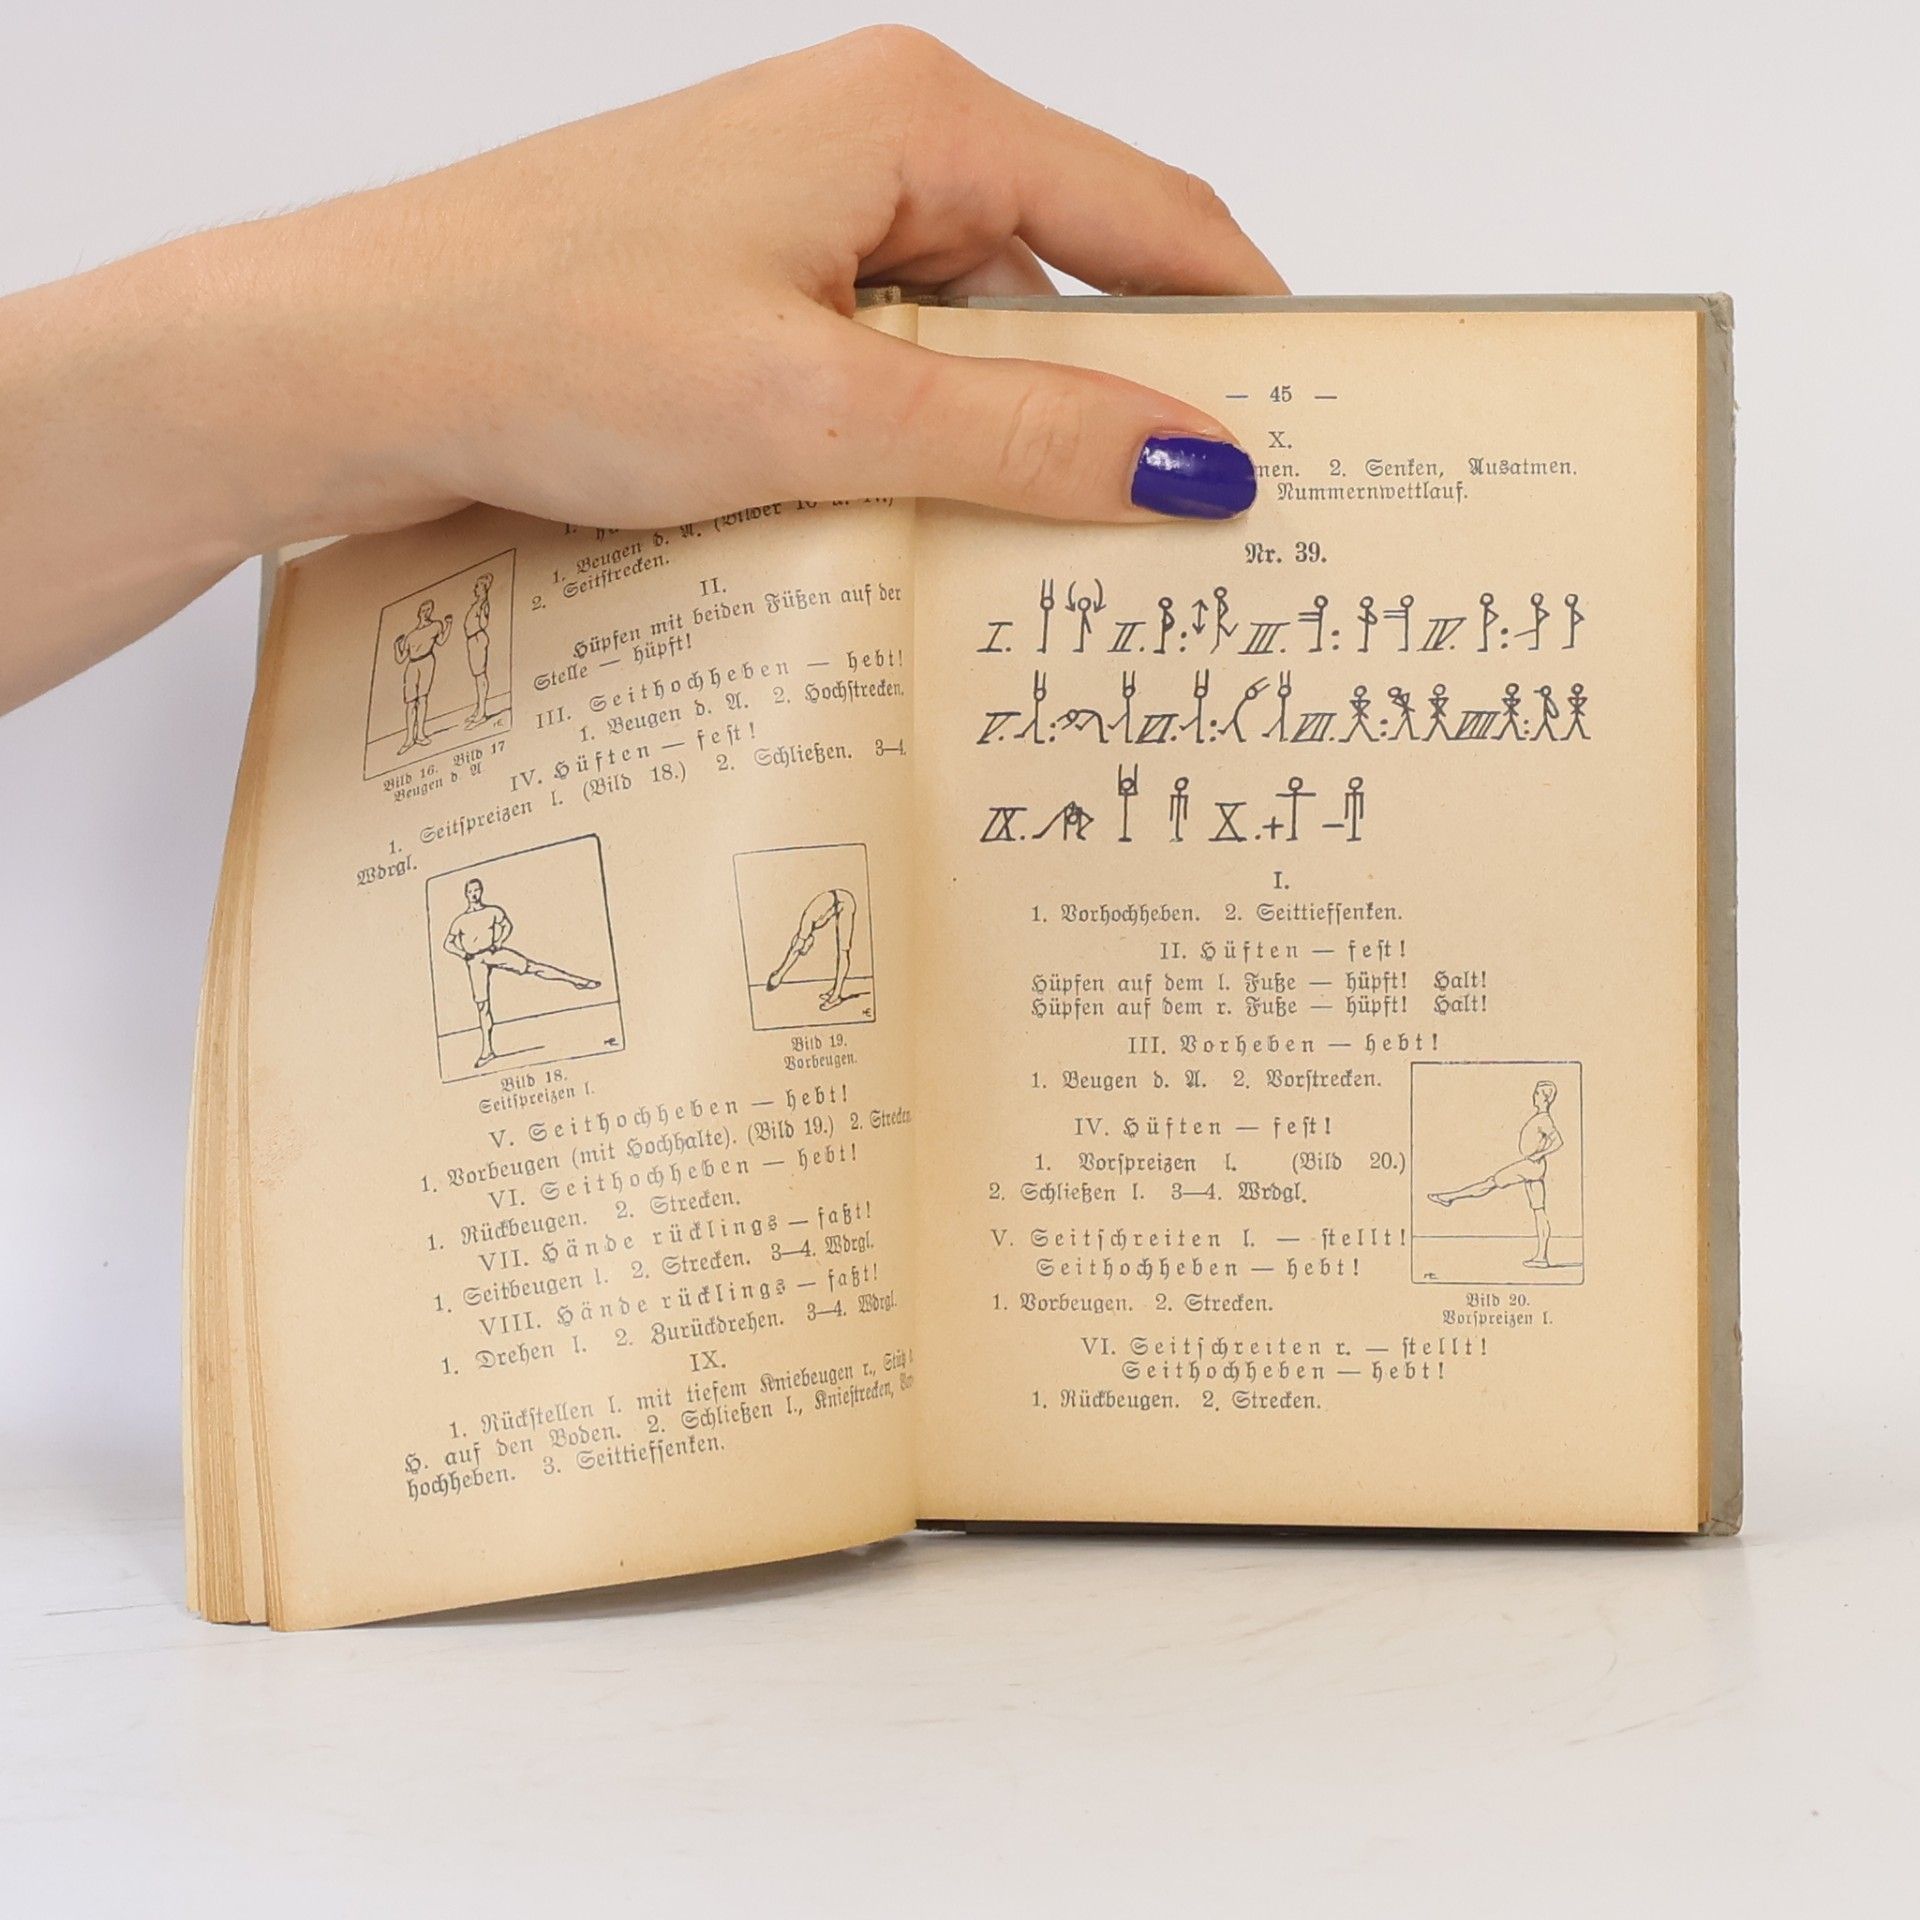 1. Beugen d. A. (Bilder 16 u. 17.)
2. Seitstrecken.
II.
Hüpfen mit beiden Füßen auf der
Stelle — hüpft!
III. Seithochheben — hebt!
1. Beugen d. A. 2. Hochstrecken.
IV. Hüften — fest!
1. Seitspreizen l. (Bild 18.) 2. Schließen. 3—4.
Wdrgl.
Bild 16. Bild 17
Beugen d. A
Bild 18.
Seitspreizen l.
Bild 19.
Vorbeugen.
V. Seithochheben — hebt!
1. Vorbeugen (mit Hochhalte). (Bild 19.) 2. Strecken.
VI. Seithochheben — hebt!
1. Rückbeugen. 2. Strecken.
VII. Hände rücklings — faßt!
1. Seitbeugen l. 2. Strecken. 3—4. Wdrgl.
VIII. Hände rücklings — faßt!
1. Drehen l. 2. Zurückdrehen. 3—4. Wdrgl.
IX.
1. Rückstellen l. mit tiefem Kniebeugen r., Stütz
H. auf den Boden. 2. Schließen l., Kniestrecken,
hochheben. 3. Seittiefsenken.
— 45 —
X.
men. 2. Senken, Ausatmen.
Nummernwettlauf.
Nr. 39.
I. II. III. IV.
V. VI. VII. VIII
IX. X.
I.
1. Vorhochheben. 2. Seittiefsenken.
II. Hüften — fest!
Hüpfen auf dem l. Fuße — hüpft! Halt!
Hüpfen auf dem r. Fuße — hüpft! Halt!
III. Vorheben — hebt!
1. Beugen d. A. 2. Vorstrecken.
IV. Hüften — fest!
1. Vorspreizen l. (Bild 20.)
2. Schließen l. 3—4. Wrdgl.
V. Seitschreiten l. — stellt!
Seithochheben — hebt!
1. Vorbeugen. 2. Strecken.
Bild 20.
Vorspreizen l.
VI. Seitschreiten r. — stellt!
Seithochheben — hebt!
1. Rückbeugen. 2. Strecken.